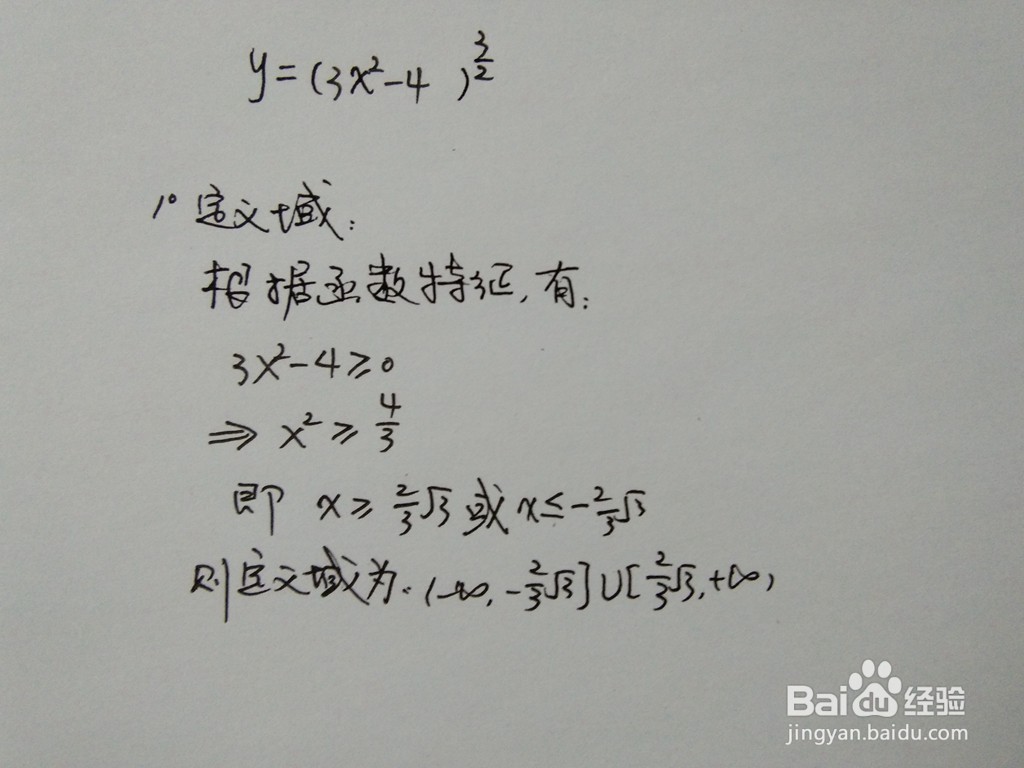 y=(3x²-4 )^(3/2)
1° 定义域:
根据函数特征,有:
3x²-4≥0
⇒ x²≥4/3
即 x≥2/3√3 或 x≤-2/3√3
则定义域为:(-∞,-2/3√3]∪[2/3√3,+∞)
Baidu经验
jingyan.baidu.com